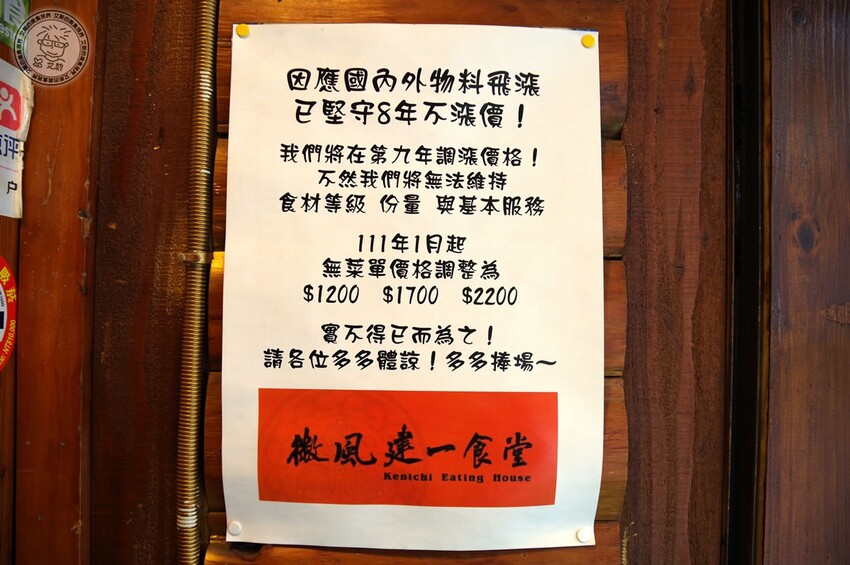 因應國內外物料飛漲
已堅守8年不漲價！
我們將在第九年調漲價格！
不然我們將無法維持
食材等級 份量 與基本服務
111年1月起
無菜單價格調整為
$1200 $1700 $2200
實不得已而為之！
請各位多多體諒！多多捧場～
微風建一食堂
Kenichi Eating House